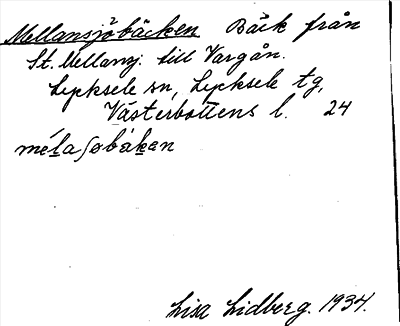 Mellansjöbäcken Bäck från
St. Mellansj. till Vargån.
Lycksele sn, Lycksele tg,
Västerbottens l. 24
mélaʃøbäken
Lisa Lidberg. 1934.